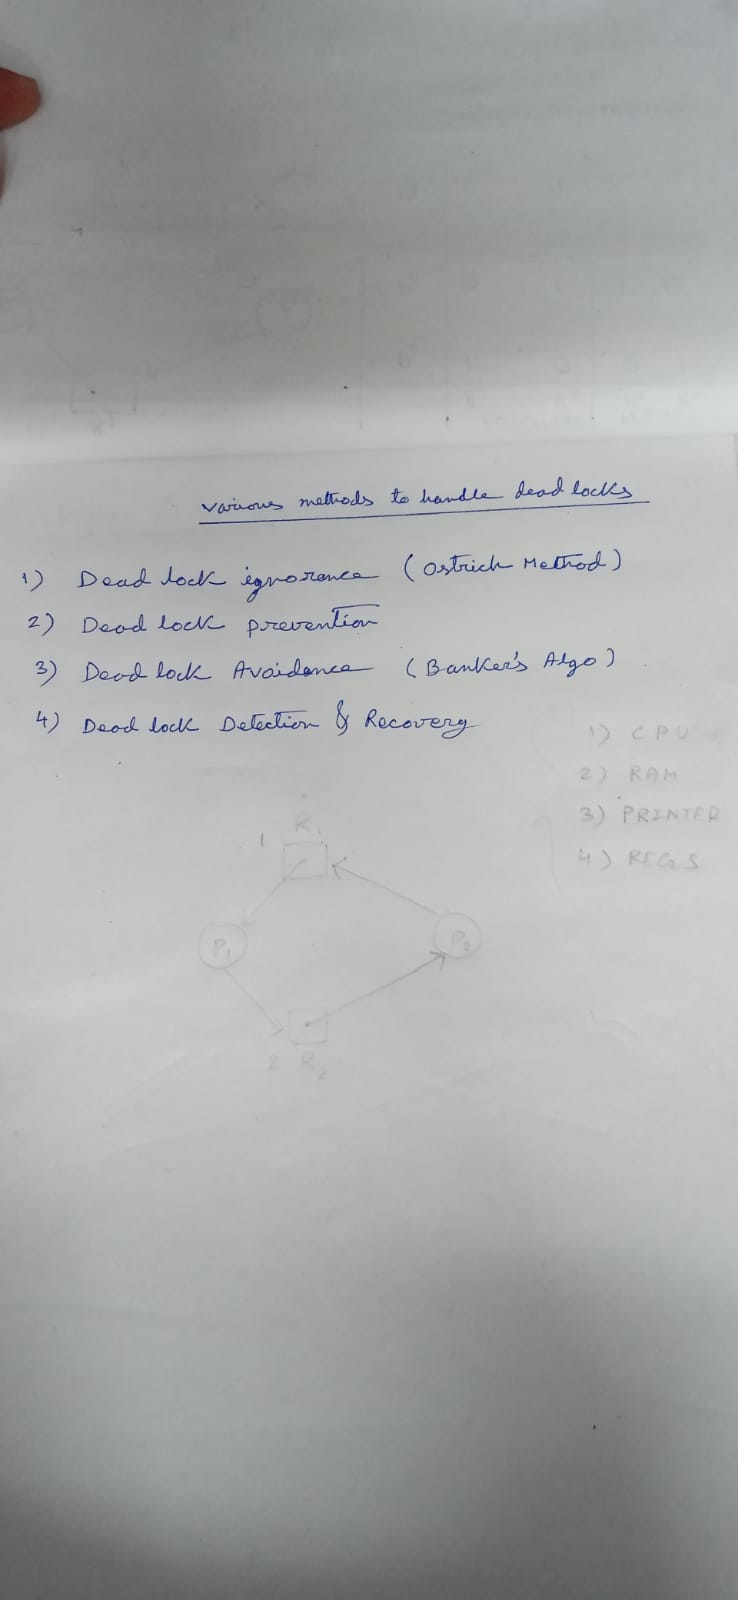 various methods to handle dead locks
1) Dead lock ignorance (Ostrich Method)
2) Dead lock prevention
3) Dead lock Avoidance (Banker's Algo)
4) Dead lock Detection & Recovery
1) CPU
2) RAM
3) PRINTER
4) REGS
1 R1
P1
P2
2 R2